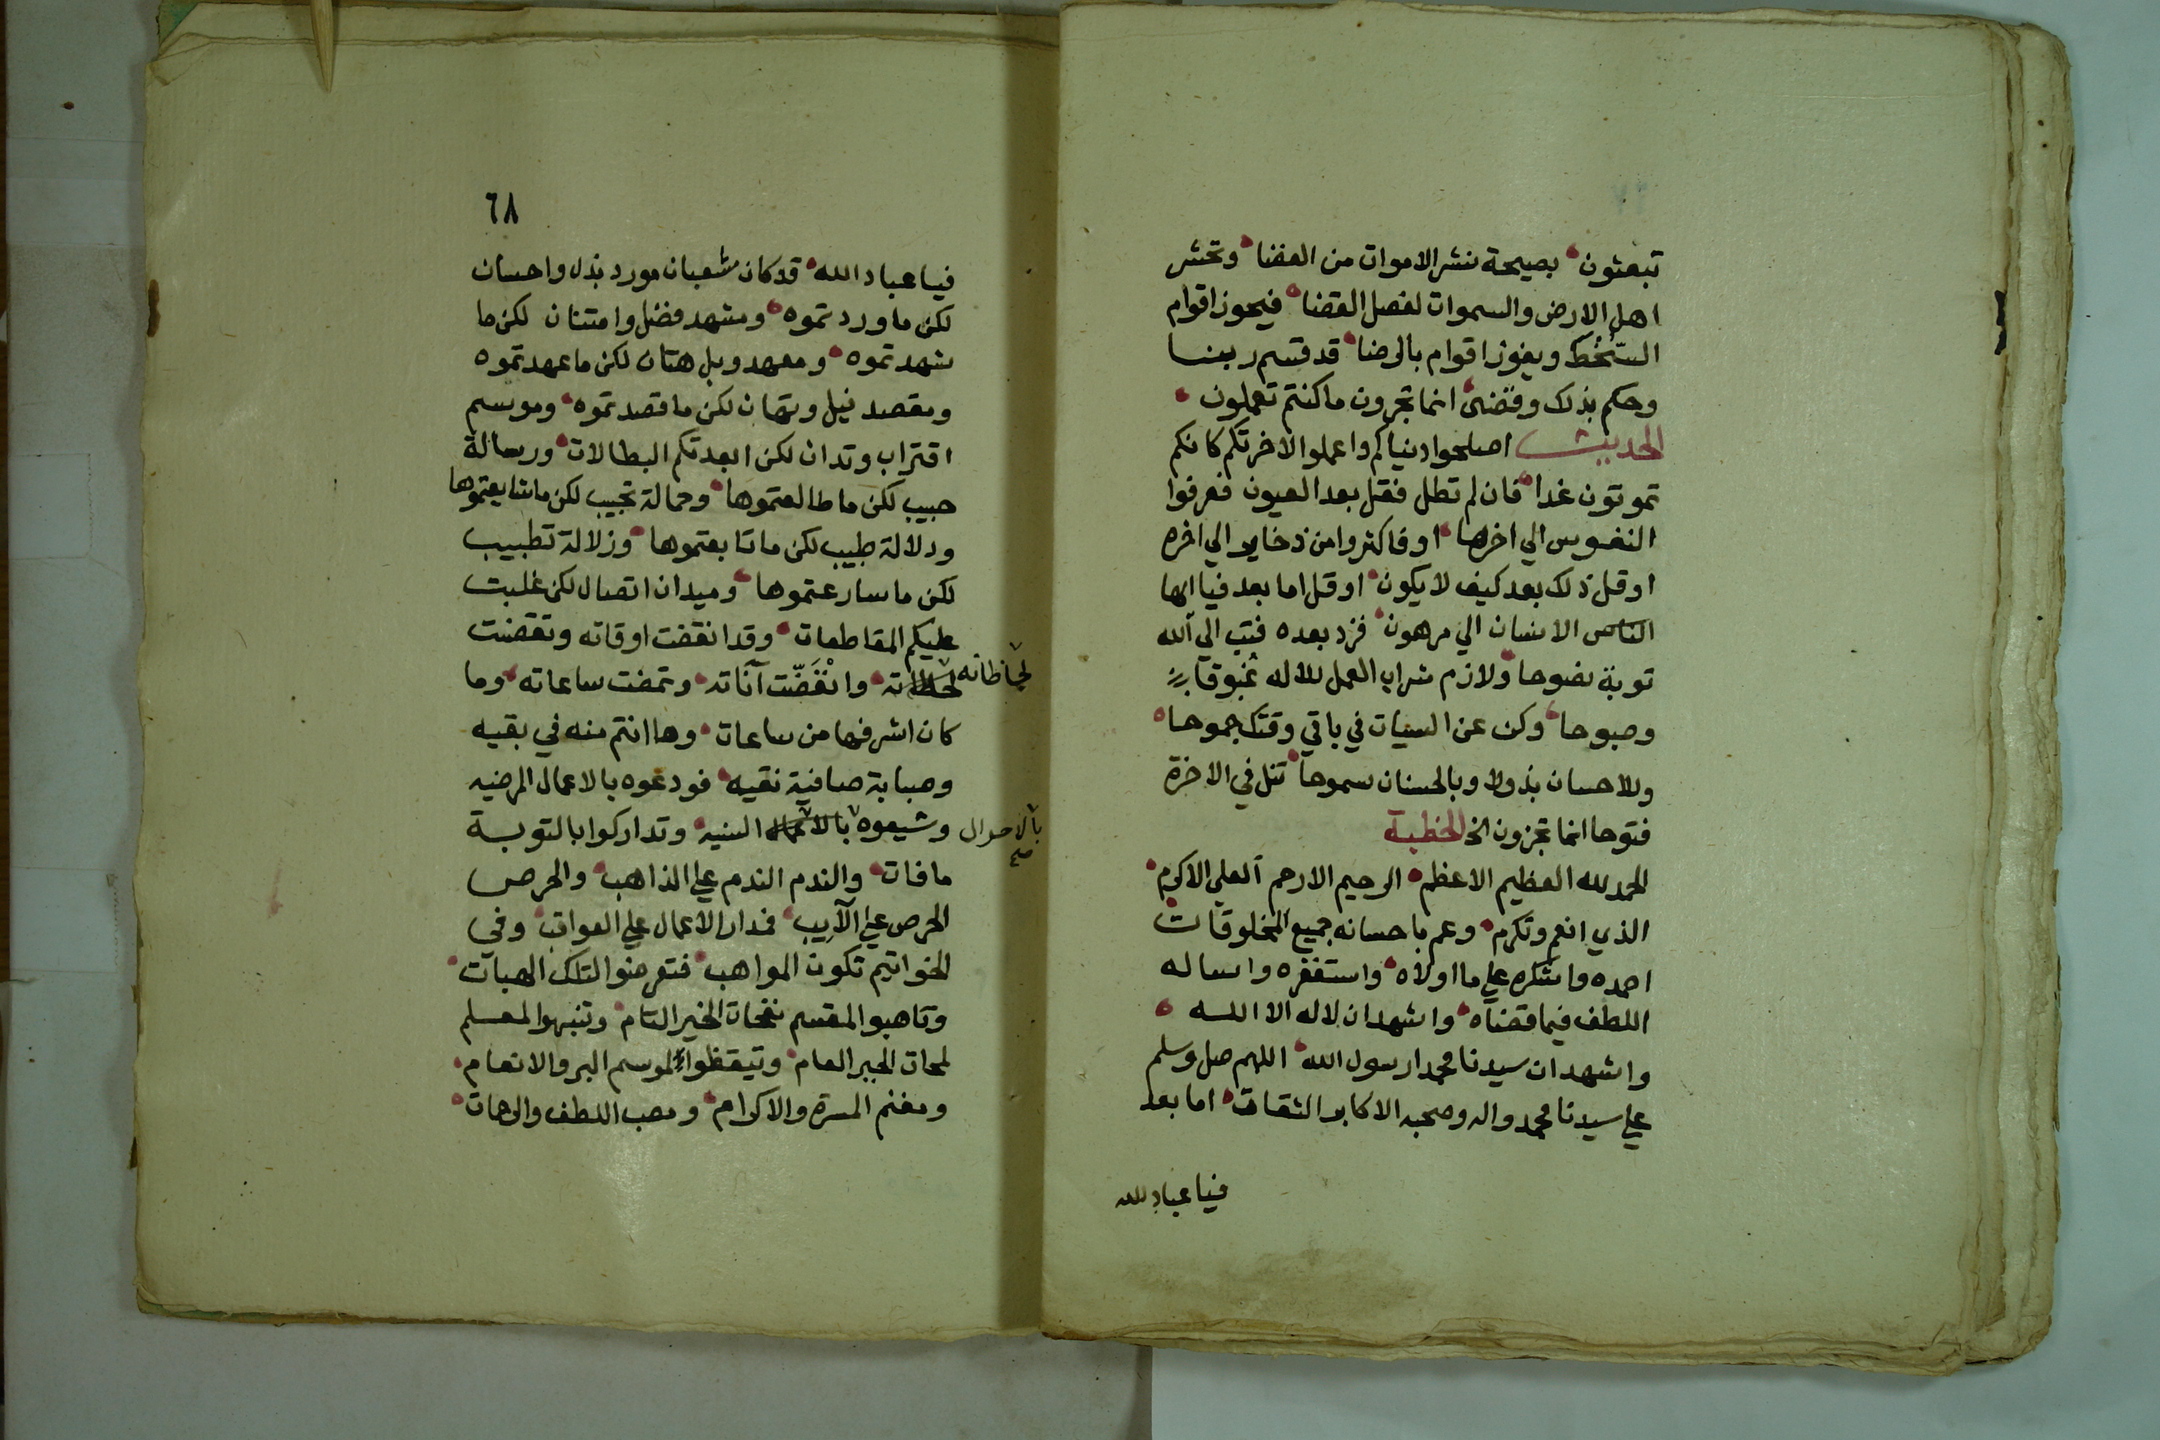 تبعثون بصيحة نشر الاموات من الفضا وتحشر
اهل الارض والسموات لفصل القضا فيحوز اقوام
السّخُط ويفوز اقوام بالرضا قد قسم ربنا
وحكم بذلك وقضىٰ انما تجزون ما كنتم تعملون
الحديث اصلحوا دنياكم واعملوا لاخرتكم كانكم
تموتون غدا فان لم تطل فقل بعد العيون فعرفوا
النفوس الي اخرها او فاكثروا من ذخاير الي اخره
او قل ذلك بعد كيف لا يكون او قل اما بعد فيا ايها
الناس الانسان الي مرهون فزد بعده فتب الي الله
توبة نصوحا ولازم شراب العمل لاله غبوقا
وصبوحا وكن عن السيات في باقي وقتك جموحا
وللاحسان بذولا وبالحسنات سموحا تنل في الاخرة
فتوحا انما تجزون الخ الخطبة
الحمد لله العظيم الاعظم الرحيم الارحم العلي الاكرم
الذي انعم وتكرم وعم باحسانه جميع المخلوقات
احمده واشكره علي ما اولاه واستغفره واساله
اللطف فيما قضاه واشهد ان لااله الا الله
واشهد ان سيدنا محمدا رسول الله اللهم صل وسلم
علي سيدنا محمد واله وصحبه الاكابر الثقات اما بعد
فيا عباد الله
٦٨
فيا عباد الله قد كان شعبان مورد بذل واحسان
لكن ما وردتموه ومشهد فضل وامتنان لكن ما
شهدتموه ومعهد وبل هتان لكن ما عهدتموه
ومقصد نيل وتهان لكن ما قصدتموه وموسم
اقتراب وتدان لكن ابعدتكم البطالات ورسالة
حبيب لكن ما طالعتموها وحمالة نجيب لكن ما شايعتموها
ودلالة طبيب لكن ما تابعتموها وزلالة تطبيب
لكن ما سارعتموها وميدان اتصال لكن غلبت
عليكم المقاطعات وقد انقضت اوقاته وتقضت
لحاظاته وانْفَضّت آناته وتمضت ساعاته وما
لحاظاته
كان اشرفها من ساعات وها انتم منه في بقيه
وصبابة صافية نقيه فودعوه بالاعمال المرضيه
وشيعوه بالاعمال السنيه وتداركوا بالتوبة
بالاحوال
صح
ما فات والندم الندم علي الذاهب والحرص
الحرص علي الآيب فمدار الاعمال علي العواقب وفي
الخواتيم تكون المواهب فتعرضوا لتلك الهبات
وتاهبوا لمقسم نفحات الخير التام وتنبهوا لمعلم
لمحات الجبر العام وتيقظوا لموسم البر والانعام
ومغنم المسرة والاكرام ومصب اللطف والرحمات